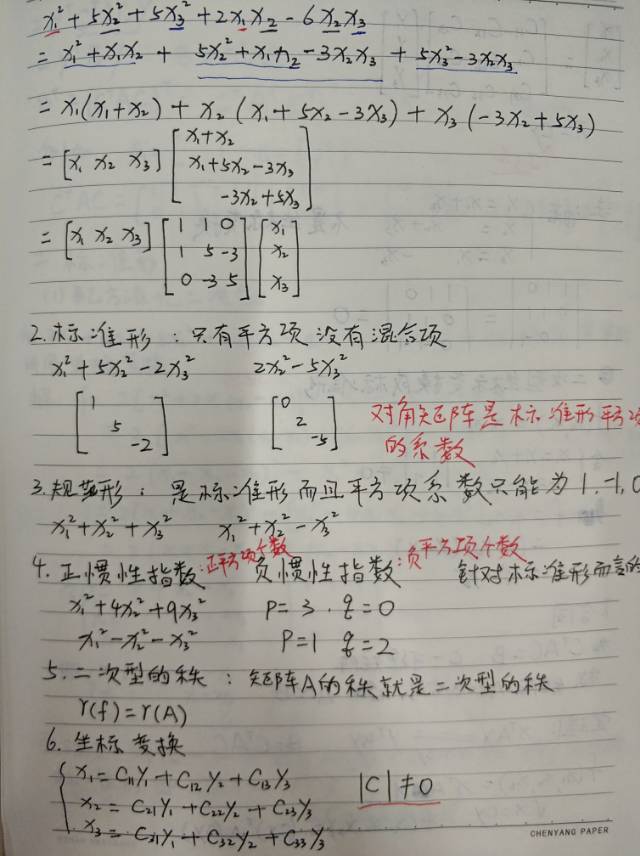 x₁² + 5x₂² + 5x₃² + 2x₁x₂ - 6x₂x₃
= x₁² + x₁x₂ + 5x₂² + x₁x₂ - 3x₂x₃ + 5x₃² - 3x₂x₃
= x₁(x₁+x₂) + x₂(x₁+5x₂-3x₃) + x₃(-3x₂+5x₃)
= [x₁ x₂ x₃] [x₁+x₂
x₁+5x₂-3x₃
-3x₂+5x₃]
= [x₁ x₂ x₃] [1 1 0 [x₁
1 5 -3 x₂
0 -3 5] x₃]
2. 标准形：只有平方项没有混合项
x₁² + 5x₂² - 2x₃² 2x₂² - 5x₃²
[1 [0
5 2 对角矩阵是标准形平方项
-2] -5] 的系数
3. 规范形：是标准形而且平方项系数只能为1,-1,0
x₁² + x₂² + x₃² x₁² + x₂² - x₃²
4. 正惯性指数：正平方项个数 负惯性指数：负平方项个数 针对标准形而言的
x₁² + 4x₂² + 9x₃² p=3. q=0
x₁² - x₂² - x₃² p=1 q=2
5. 二次型的秩：矩阵A的秩就是二次型的秩
r(f)=r(A)
6. 坐标变换
{ x₁ = C₁₁y₁ + C₁₂y₂ + C₁₃y₃ |C| ≠ 0
x₂ = C₂₁y₁ + C₂₂y₂ + C₂₃y₃
x₃ = C₃₁y₁ + C₃₂y₂ + C₃₃y₃
CHENYANG PAPER